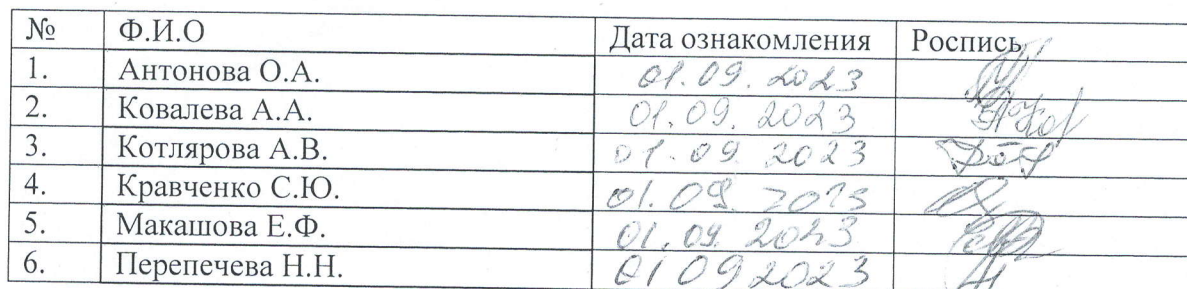 № Ф.И.О Дата ознакомления Роспись
1. Антонова О.А. 01.09.2023
2. Ковалева А.А. 01.09.2023
3. Котлярова А.В. 01.09.2023
4. Кравченко С.Ю. 01.09.2023
5. Макашова Е.Ф. 01.09.2023
6. Перепечева Н.Н. 01 09 2023